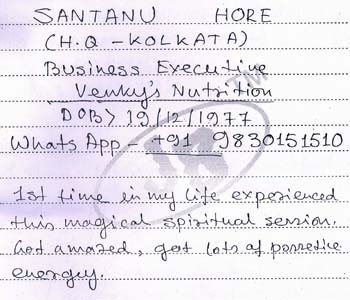 SANTANU HORE
(H.Q - KOLKATA)
Business Executive
Venky's Nutrition
DOB> 19/12/1977
Whats App - +91 9830151510
1st time in my life experienced
this magical spiritual session.
Got amazed, got lots of possetive
energy.
JR TM